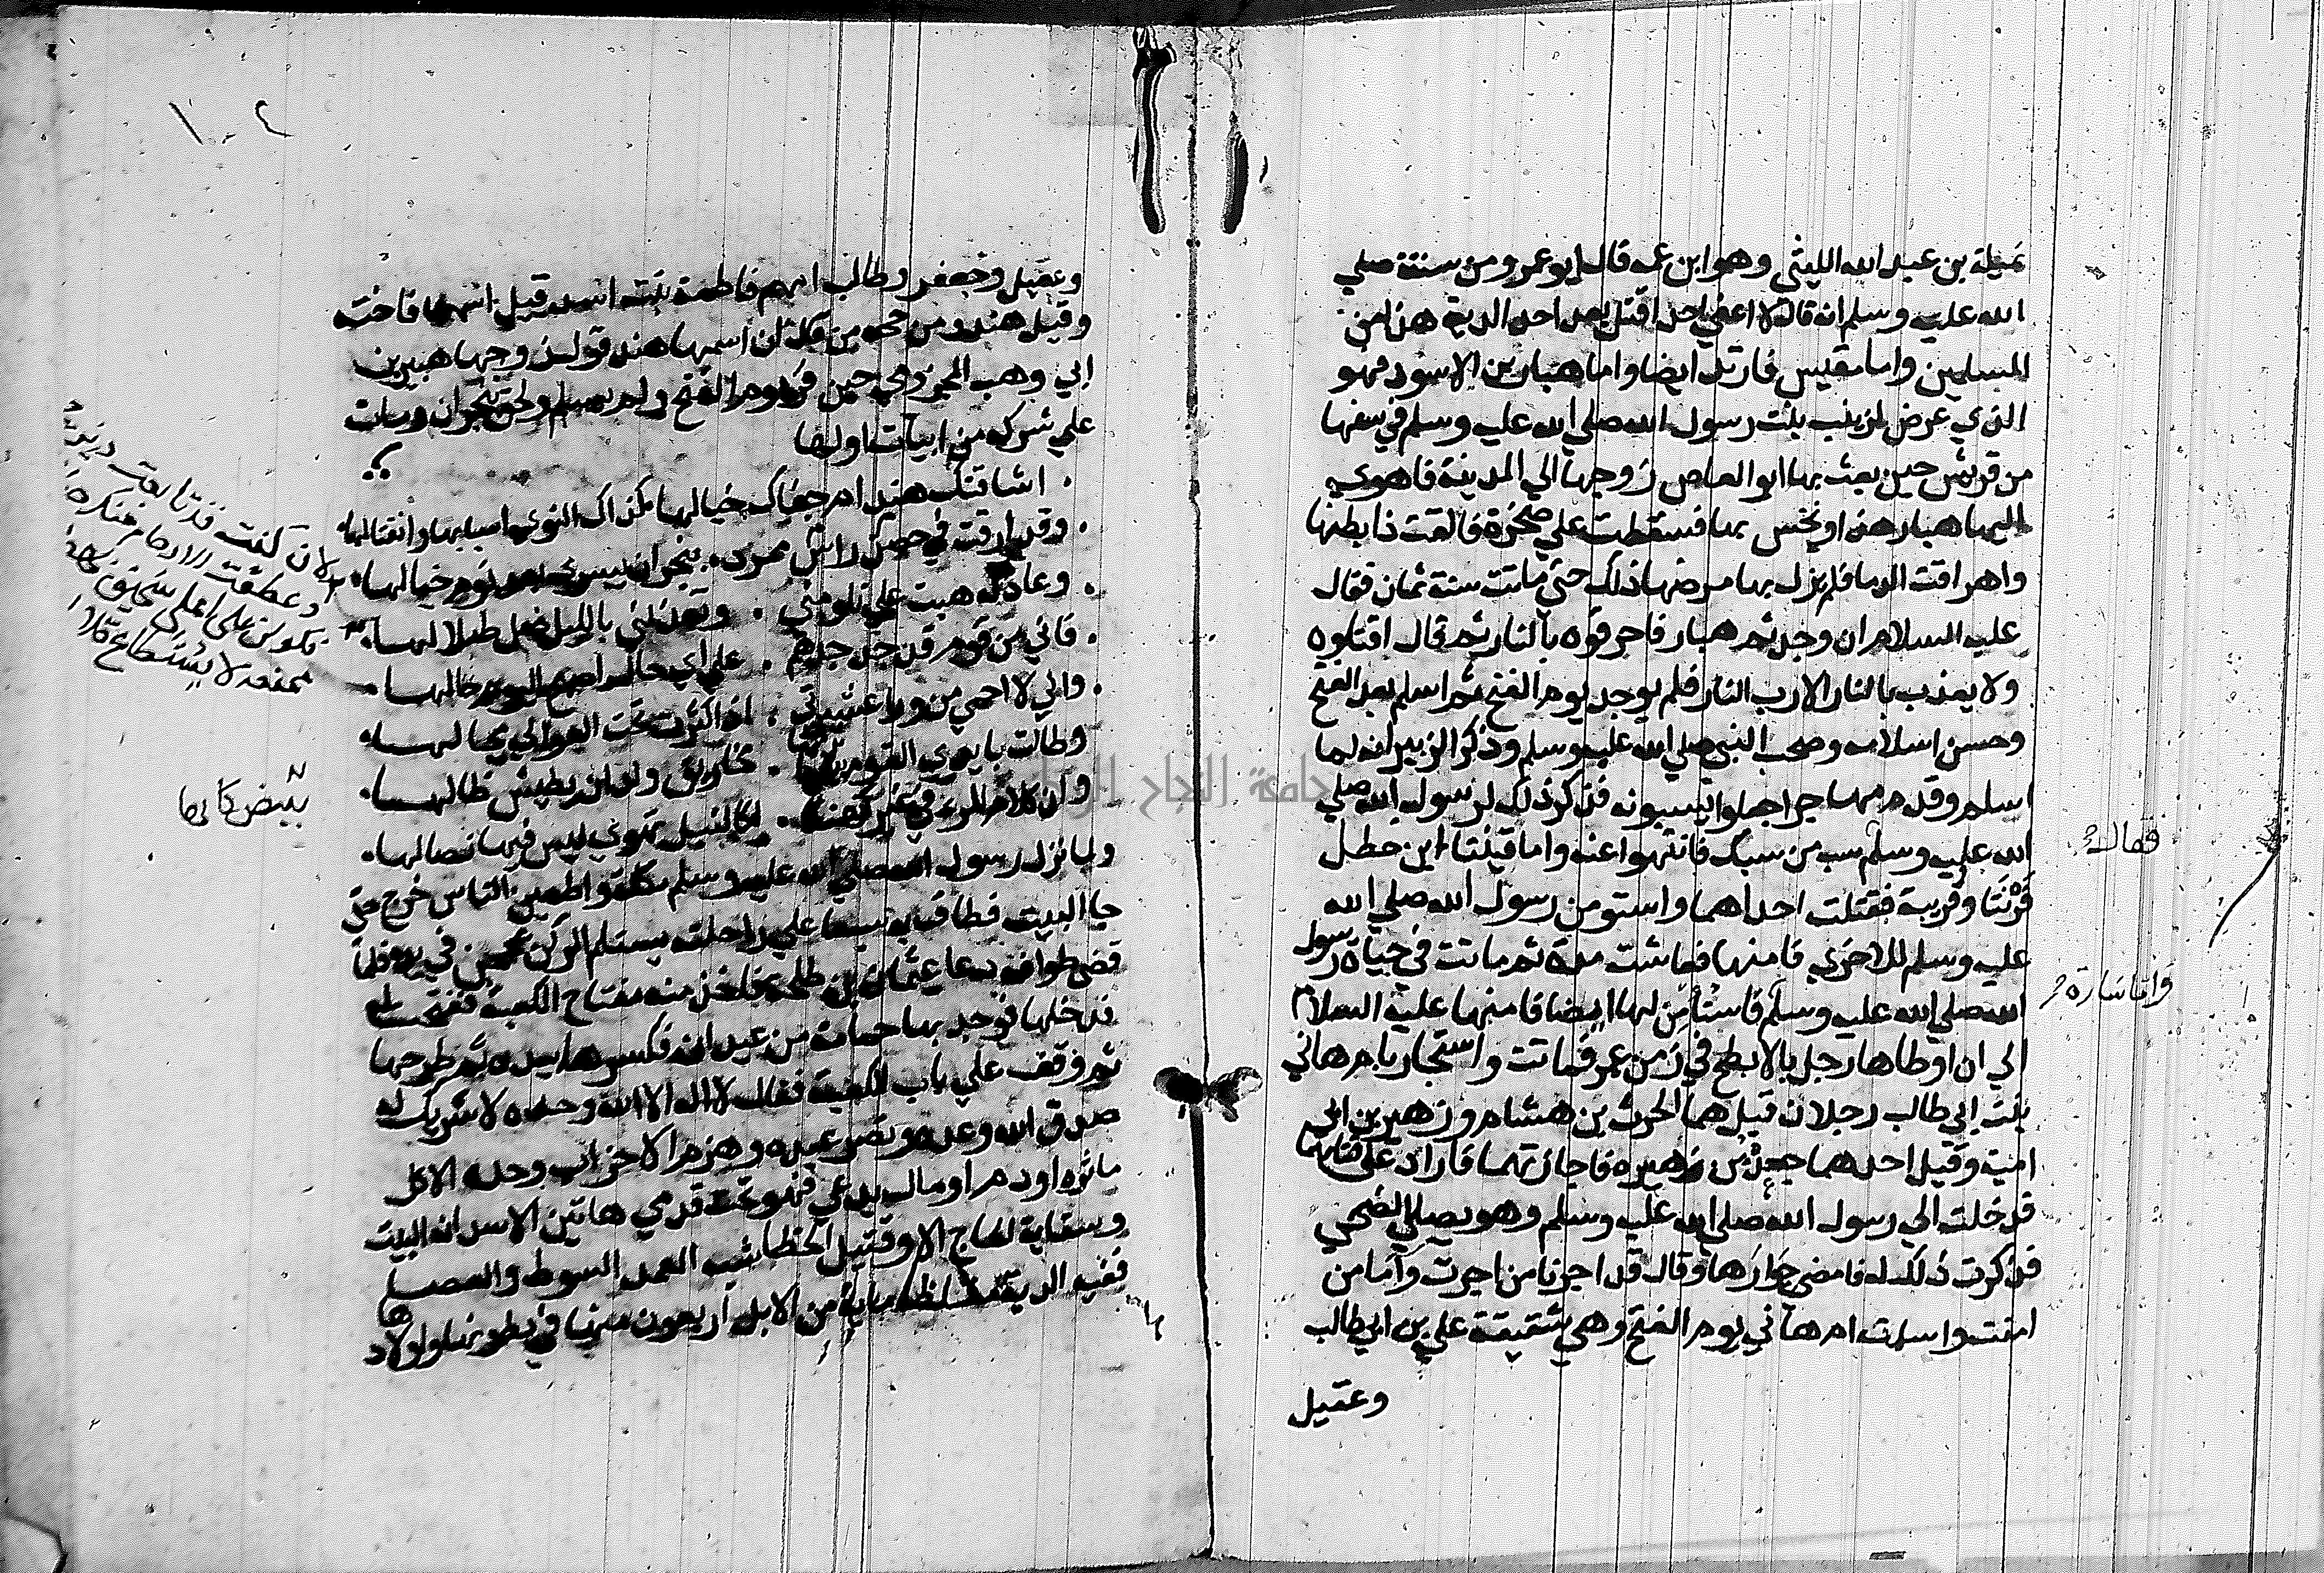 نميلة بن عبد الله الليثي وهو ابن عمه قال ابو عمر ومن سنته صلي
الله عليه وسلم انه قال لا اعفي احدا قتل بعد احد الدية هذا من
المسلمين واما مقيس فارتد ايضا واما هبار بن الاسود فهو
الذي عرض لزينب بنت رسول الله صلي الله عليه وسلم في سفها
من قريش حين بعث بها ابو العاص زوجها الي المدينة فاهوي
اليها هبار هذا ونخس بها فسقطت علي صخرة فالقت ذا بطنها
واهراقت الدما فلم يزل بها مرضها ذلك حتي ماتت سنة ثمان فقال
عليه السلام ان وجدتم هبار فاحرقوه بالنار ثم قال اقتلوه
ولا يعذب بالنار الا رب النار فلم يوجد يوم الفتح ثم اسلم بعد الفتح
وحسن اسلامه وصحب النبي صلي الله عليه وسلم وذكر الزبير انه لما
اسلم وقدم مهاجرا جعلوا يسبونه فذكر ذلك لرسول الله صلي
الله عليه وسلم سب من سبك فانتهوا عنه واما قينتا ابن خطل
فقال
فرتنا وقريبة فقتلت احداهما واستومن رسول الله صلي الله
عليه وسلم للاخري فامنها فعاشت مدة ثم ماتت في حياة رسول
واما سارة
الله صلي الله عليه وسلم فاستأمن لها ايضا فامنها عليه السلام
الي ان اوطاها رجل بالابطح في زمن عمر فماتت واستجار بام هاني
بنت ابي طالب رجلان قيل هما الحرث بن هشام وزهير بن ابي
امية وقيل احدهما جعدة بن هبيره فاجارتهما فاراد علي قتلهما
فدخلت الي رسول الله صلي الله عليه وسلم وهو يصلي الضحي
فذكرت ذلك له فامضي جوارهما وقال قد اجرنا من اجرت وآمنا من
امنت واسلمت ام هاني يوم الفتح وهي شقيقة علي بن ابي طالب
وعقيل
١٠٢
وعقيل وجعفر وطالب امهم فاطمة بنت اسد قيل اسمها فاخته
وقيل هند ومن حجة من قال ان اسمها هند قول زوجها هبير بن
ابي وهب المخزومي حين فر يوم الفتح ولم يسلم ولحق بنجران ومات
علي شركه من ابيات اولها
اشاقتك هند ام جفاك خيالها كذاك النوي اسبابها وانفتالها
وقد ارقت في حصن راس ممرد . بنجران يسري بعد نوم خيالها
وعاذلة هبت علي تلومني . وتعذلني بالليل ضل ضلالها
فاني من قوم قد جل جدهم . علي اي حال اصبح اليوم حالها
واني لاحمي من ورا عشيرتي . اذا كثرت تحت العوالي مجالها
وطالت بايدي القوم
وان كلام المرء في غير كنهه . لكالنبل تهوي ليس فيها نصالها
لان كنت قد تابعت دين
وعطفت الارحام منك
فكوني علي اعلي سحيق
ممنعه لا يستطاع
ولما نزل رسول الله صلي الله عليه وسلم مكة واطمين الناس خرج حتي
جا البيت فطاف به سبعا علي راحلته يستلم الركن بمحجن في يده فلما
قضي طوافه دعا عثمان بن طلحة فاخذ منه مفتاح الكعبة ففتحت له
فدخلها فوجد بها حمامة من عيدان فكسرها بيده ثم طرحها
ثم وقف علي باب الكعبة فقال لا اله الا الله وحده لا شريك له
صدق الله وعده ونصر عبده وهزم الاحزاب وحده الا كل
ماثرة او دم او مال يدعي فهو تحت قدمي هاتين الا سدانه البيت
وسقاية الحاج الا وقتيل الخطا شبه العمد السوط والعصا
ففيه الدية مغلظه ماية من الابل اربعون منها في بطونها اولادها